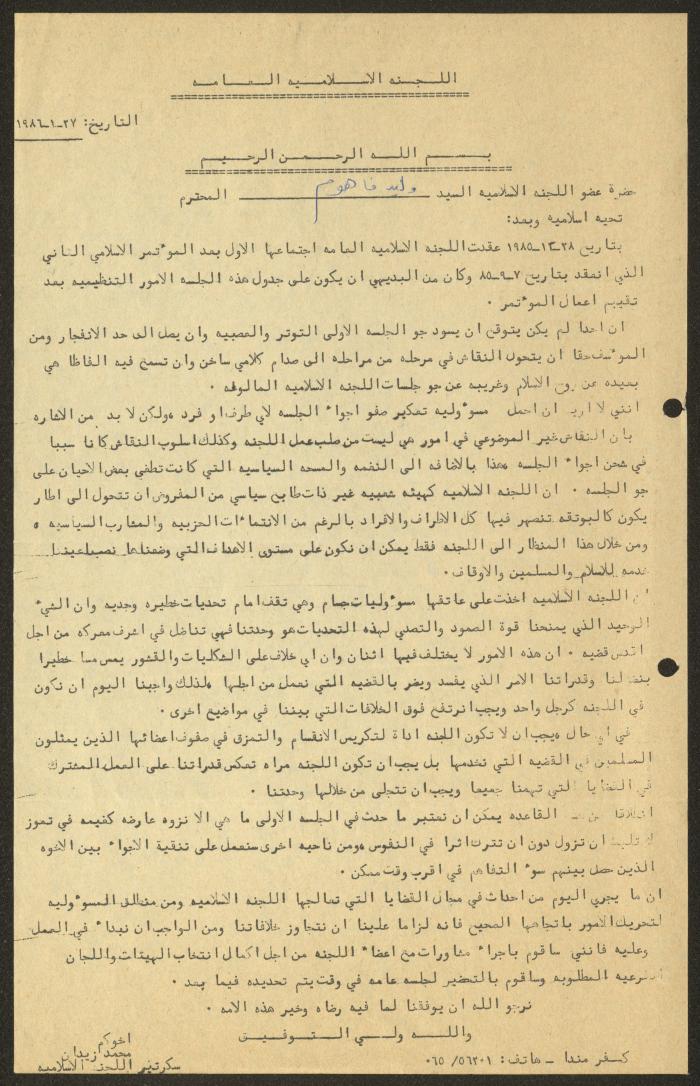 اللجنه الاسلاميه العامه
التاريخ: ٢٧-١-١٩٨٦
بسم الله الرحمن الرحيم
حضرة عضو اللجنه الاسلاميه السيد وليد فاهوم المحترم
تحيه اسلاميه وبعد:
بتاريخ ٢٨-١٢-١٩٨٥ عقدت اللجنه الاسلاميه العامه اجتماعها الاول بعد المؤتمر الاسلامي الثاني
الذي انعقد بتاريخ ٧-٩-٨٥ وكان من البديهي ان يكون على جدول هذه الجلسه الامور التنظيميه بعد
تقييم اعمال المؤتمر .
ان احدا لم يكن يتوقع ان يسود جو الجلسه الاولى التوتر والعصبيه وان يصل الى حد الانفجار ومن
المؤسف حقا ان يتحول النقاش في مرحله من مراحله الى صدام كلامي ساخن وان تسمع فيه الفاظا هي
بعيده عن روح الاسلام وغريبه عن جو جلسات اللجنه الاسلاميه المالوفه .
انني لا اريد ان احمل مسؤوليه تعكير صفو اجواء الجلسه لاي طرف او فرد ولكن لا بد من الاشاره
بان النقاش غير الموضوعي في امور هي ليست من صلب عمل اللجنه وكذلك اسلوب النقاش كانا سببا
في شحن اجواء الجلسه هذا بالاضافه الى النغمه والمسحه السياسيه التي كانت تطغى بعض الاحيان على
جو الجلسه . ان اللجنه الاسلاميه كهيئه شعبيه غير ذات طابع سياسي من المفروض ان تتحول الى اطار
يكون كالبوتقه تنصهر فيها كل الاطراف والافراد بالرغم من الانتماءات الحزبيه والمشارب السياسيه ،
ومن خلال هذا المنظار الى اللجنه فقط يمكن ان نكون على مستوى الاهداف التي وضعناها نصب اعيننا
خدمه للاسلام والمسلمين والاوقاف.
ان اللجنه الاسلاميه اخذت على عاتقها مسؤوليات جسام وهي تقف امام تحديات خطيره وجديه وان الشيء
الوحيد الذي يمنحنا قوة الصمود والتصدي لهذه التحديات هو وحدتنا فهي تناضل في اشرف معركه من اجل
اقدس قضيه . ان هذه الامور لا يختلف فيها اثنان وان اي خلاف على الشكليات والقشور يمس مسا خطيرا
بنضالنا وقدراتنا الامر الذي يفسد ويضر بالقضيه التي نعمل من اجلها ،لذلك واجبنا اليوم ان نكون
في اللجنه كرجل واحد ويجب ان نرتفع فوق الخلافات التي بيننا في مواضيع اخرى .
في اي حال ،يجب ان لا تكون اللجنه اداة لتكريس الانقسام والتمزق في صفوف اعضائها الذين يمثلون
المسلمين في القضيه التي نخدمها بل يجب ان تكون اللجنه مراه تعكس قدراتنا على العمل المشترك
في القضايا التي تهمنا جميعا ويجب ان تتجلى من خلالها وحدتنا .
انطلاقا من القاعده يمكن ان نعتبر ما حدث في الجلسه الاولى ما هي الا نزوه عارضه كغيمه في تموز
ان تزول دون ان تترك اثرا في النفوس ،ومن ناحيه اخرى سنعمل على تنقية الاجواء بين الاخوه
الذين حصل بينهم سوء التفاهم في اقرب وقت ممكن .
ان ما يجري اليوم من احداث في مجال القضايا التي تعالجها اللجنه الاسلاميه ومن منطلق المسؤوليه
لتحريك الامور باتجاهها الصحيح فانه لزاما علينا ان نتجاوز خلافاتنا ومن الواجب ان نبداء في العمل
وعليه فانني ساقوم باجراء مشاورات مع اعضاء اللجنه من اجل اكمال انتخاب الهيئات واللجان
الفرعيه المطلوبه وساقوم بالتحضير لجلسه عامه في وقت يتم تحديده فيما بعد .
نرجو الله ان يوفقنا لما فيه رضاه وخير هذه الامه .
والله ولي التوفيق
اخوكم
محمد زيدان
سكرتير اللجنه الاسلاميه
كفر مندا - هاتف: ٥٦٢٠١/ ٠٦٥